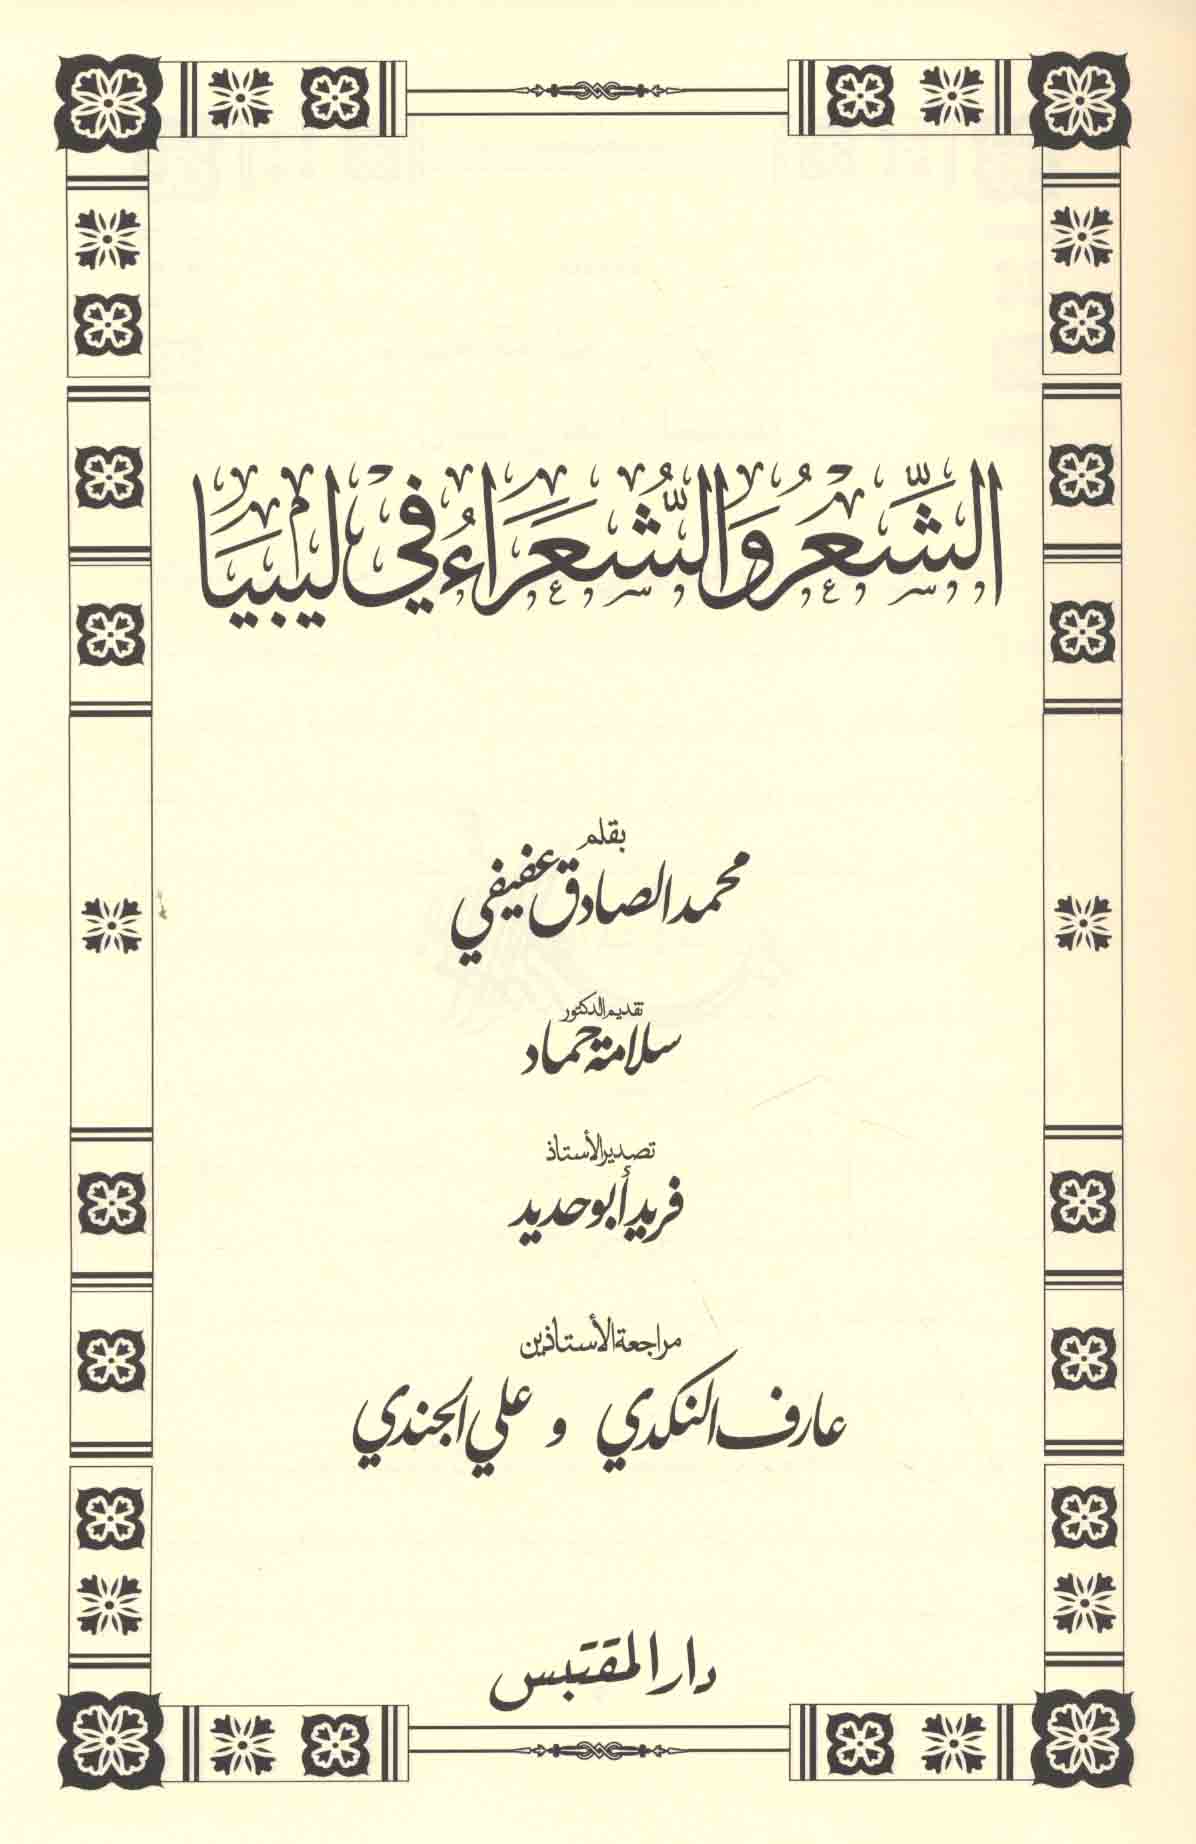 الشِّعْرُ وَالشُّعَرَاءُ فِي لِيبيَا
بقلم
محمد الصادق عفيفي
تقديم الدكتور
سلامة حماد
تصدير الأستاذ
فريد أبو حديد
مراجعة الأستاذين
عارف النكدي و علي الجندي
دار المقتبس